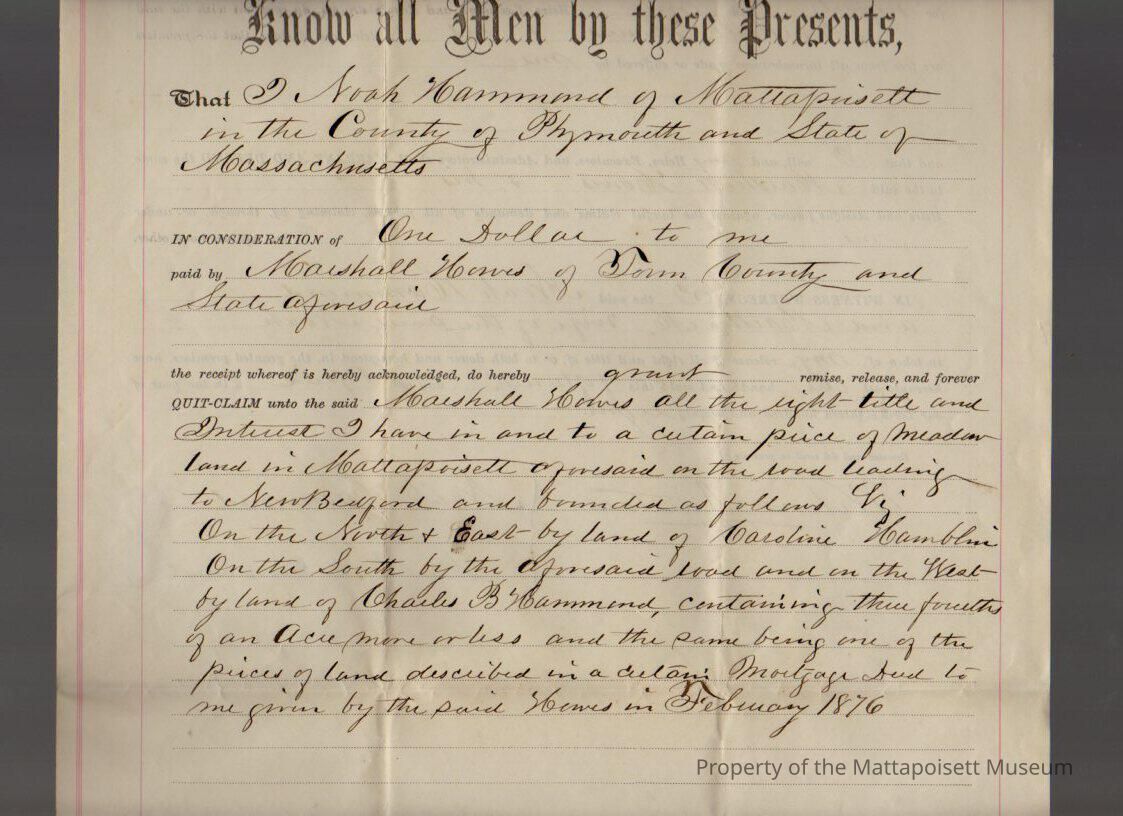 Know all Men by these Presents,
That I Noah Hammond of Mattapoisett
in the County of Plymouth and State of
Massachusetts
IN CONSIDERATION of One Dollar to me
paid by Marshall Howes of Town County and
State aforesaid
the receipt whereof is hereby acknowledged, do hereby grant remise, release, and forever
QUIT-CLAIM unto the said Marshall Howes all the right title and
Interest I have in and to a certain piece of meadow
land in Mattapoisett aforesaid on the road leading
to New Bedford and bounded as follows Viz
On the North & East by land of Caroline Hamblin
On the South by the aforesaid road and on the West
by land of Charles B Hammond, containing three fourths
of an Acre more or less and the same being one of the
pieces of land described in a certain Mortgage Deed to
me given by the said Howes in February 1876
Property of the Mattapoisett Museum